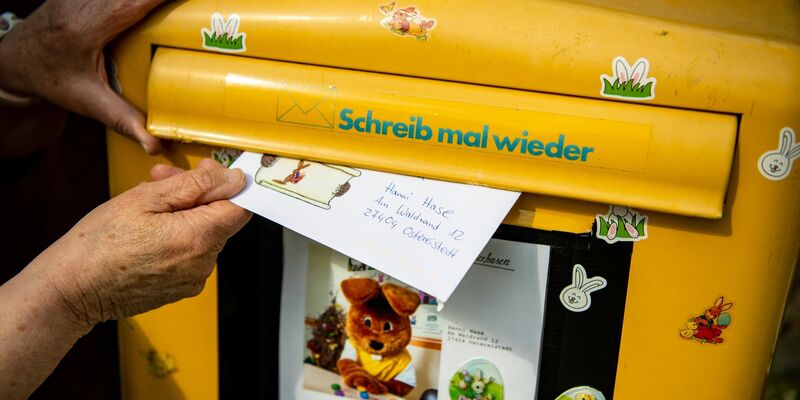 Schreib mal wieder
Hanni Hase
Am Waldrand 12
27404 Ostereistedt
Hanni Hase
Am Waldrand 12
27404 Ostereistedt